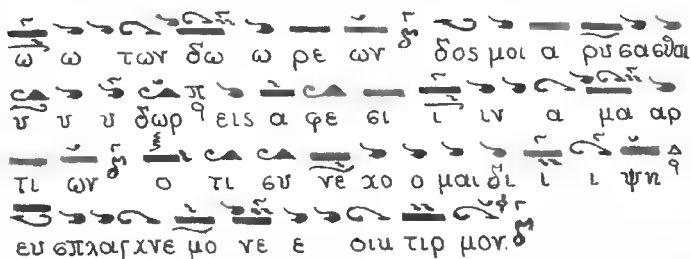 ω ω των δω ω ρε ων δος μοι α ρυ σα σθαι
υ υ υ δωρ εις α φε σι ι ιν α μα αρ
τι ων ο τι συ νε χο ο μαι δι ι ι ψη
ευ σπλαγ χνε μο νε ε οικ τιρ μον.